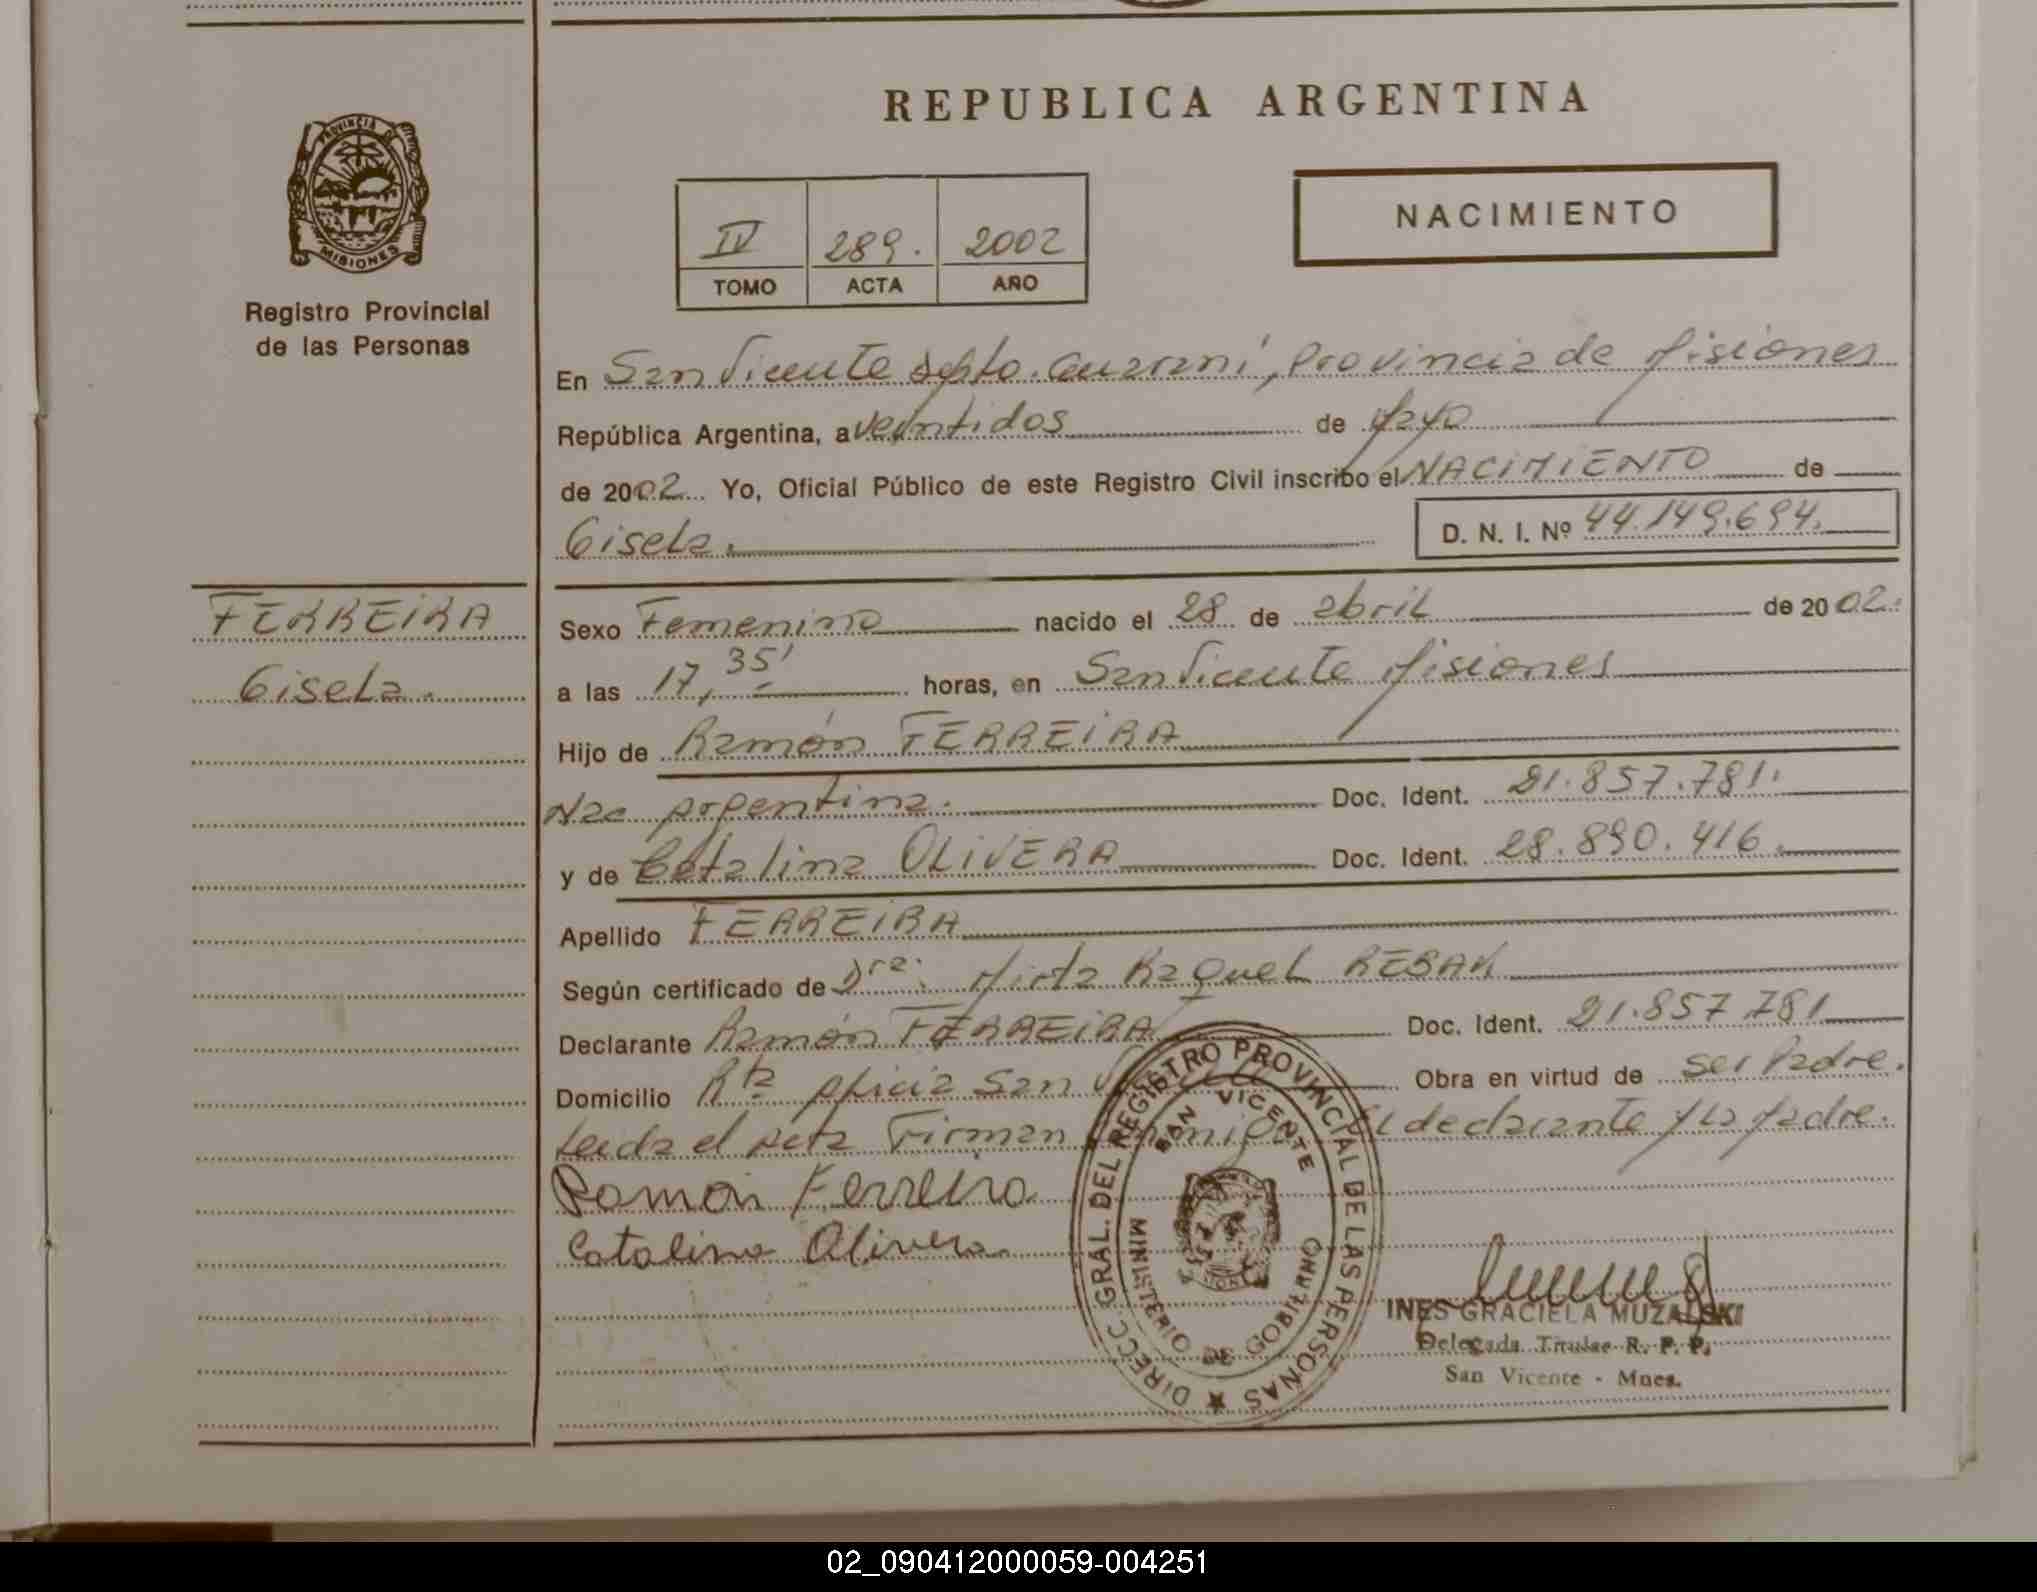 REPUBLICA ARGENTINA
PROVINCIA DE
MISIONES
Registro Provincial
de las Personas
NACIMIENTO
IV 289. 2002
TOMO ACTA AÑO
En San Vicente depto. Guaraní, Provincia de Misiones
República Argentina, a veintidos de Mayo
de 2002 Yo, Oficial Público de este Registro Civil inscribo el NACIMIENTO de
Gisela. D. N. I. Nº 44.149.694.
FERREIRA
Gisela.
Sexo Femenino nacido el 28 de abril de 2002.
a las 17,35' horas, en San Vicente Misiones
Hijo de Ramón FERREIRA
Nac Argentina. Doc. Ident. 21.857.781.
y de Catalina OLIVERA Doc. Ident. 28.890.416.
Apellido FERREIRA
Según certificado de Dra. Mirta Raquel
Declarante Ramón FERREIRA Doc. Ident. 21.857.781
Domicilio San Obra en virtud de ser Padre.
Leida el acta Firman El declarante y la Madre.
Ramón Ferreira
Catalina Olivera
DIRECC. GRAL. DEL REGISTRO PROVINCIAL DE LAS PERSONAS
SAN VICENTE
MINISTERIO DE GOBIERNO
INES GRACIELA MUZALSKI
Delegada Titular R. P. P.
San Vicente - Mnes.
02_090412000059-004251